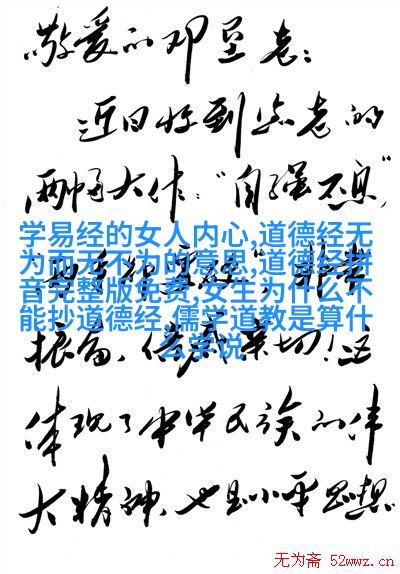 敬爱的邓垦老：
近日收到您老的
两幅大作："自强不息"
学易经的女人内心,道德经无
为而无不为的意思,道德经拼
音完整版免费,女生为什么不
能抄道德经,儒学道教是算什
么学说
振奋、倍感亲切！这
体现了中华民族的伟
大精神、也是小平思想
无为斋 52wwz.cn